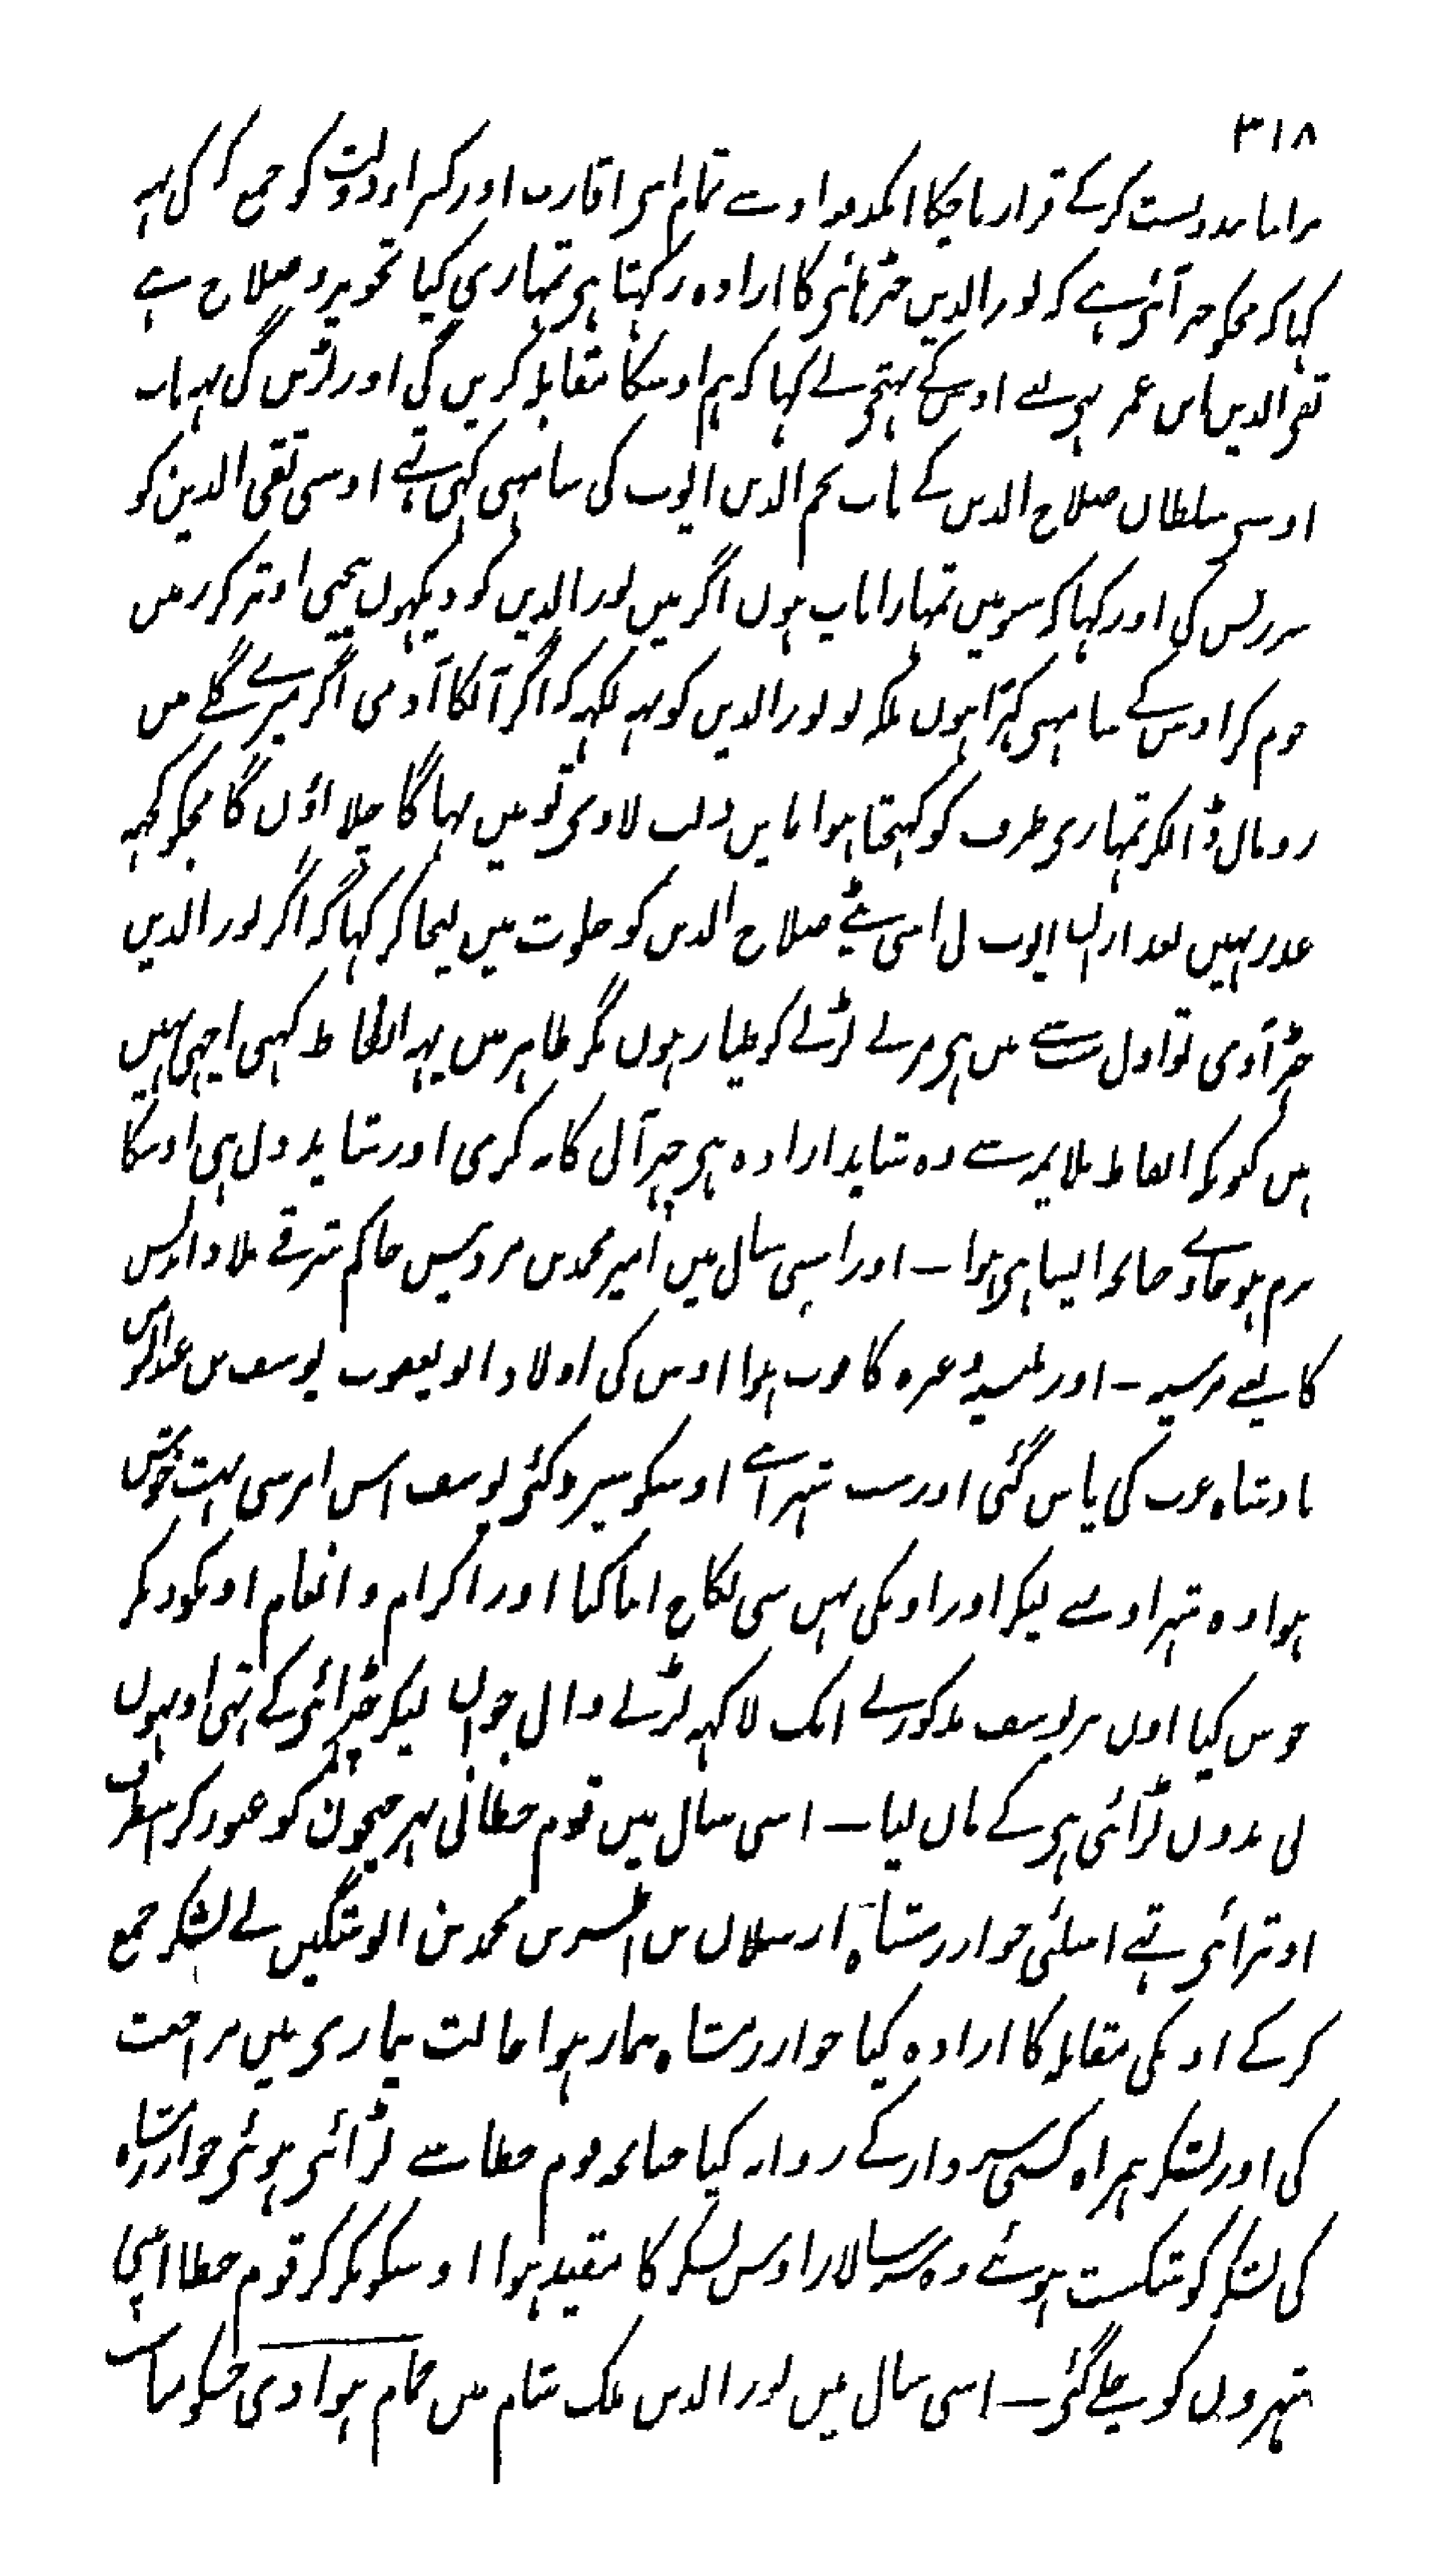 ۳۱۸
میرا اپنا بندوبست کرکے قرار پا چکا ایکدفعہ اوسے تمام اپنی اقارب اور کبراء دولت کو جمع کر کی یہہ
کہا کہ مجکو خبر آئی ہے کہ نورالدین چڑہائی کا ارادہ رکہتا ہی تمہاری کیا تجویز و صلاح ہے
تقی الدین بن عمر بہی نے اوس کے بہتیجی نے کہا کہ ہم اوسکا مقابلہ کریں گی اور لڑیں گی یہہ بات
اوسی سلطان صلاح الدین کے باپ نجم الدین ایوب کی سامہنی کہی تہے اوسی تقی الدین کو
سرزنش کی اور کہا کہ سنو میں تمہارا باپ ہوں اگر میں نورالدین کو دیکہوں نیچی اوتر کر زمین
چوم کر اوس کے سامہنی کہڑا ہوں بلکہ تو نورالدین کو یہہ لکہہ کہ اگر آپکا آدمی اگر میرے گلے میں
رومال ڈالکر تمہاری طرف کو کہینچتا ہوا بایں ذلت لاوی تو میں بہاگا چلا آؤں گا مجکو کچہہ
عذر نہیں بعد ازاں ایوب نی اپنی بیٹے صلاح الدین کو خلوت میں لیجا کر کہا کہ اگر نورالدین
چڑ آوی تو اول سے میں ہی مرنے لڑنے کو طیار ہوں مگر ظاہر میں یہہ الفاظ کہنی اچہی نہیں
ہیں کیونکہ الفاظ ملایمہ سے وہ شاید ارادہ ہی چڑ آنی کا نہ کری اور شاید دل ہی اوسکا
نرم ہو جاوے چنانچہ ایسا ہی ہوا ـ اور اسی سال میں امیر محمد بن مردنیش حاکم شرقے بلاد اندلس
کا یعنے مرسیہ ـ اور بلنسیہ وغیرہ کا فوت ہوا اوس کی اولاد ابو یعقوب یوسف بن عبدالمومن
بادشاہ عرب کی پاس گئی اور سب شہر اپنے اوسکو سپرد کئی یوسف اس امر سی بہت خوش
ہوا وہ شہر اوسے لیکر اور اونکی بہن سی نکاح اپنا کیا اور اکرام و انعام اونکو دیکر
خوش کیا اول میر یوسف مذکور نے ایک لاکہہ لڑنے والی جوان لیکر چڑائی کے تہی اونہوں
نی بدون لڑائی ہی کے مان لیا ـ اسی سال میں قوم خطائی نہر جیحون کو عبور کر اسطرف
اوتر آئی تہے اسلئی خوارزمشاہ ارسلان بن اتسز بن محمد بن انوشتگین نے لشکر جمع
کر کے اونکی مقابلہ کا ارادہ کیا خوارزمشاہ بیمار ہوا حالت بیماری میں مراجعت
کی اور لشکر ہمراہ کسی سردار کے روانہ کیا چنانچہ قوم خطا سے لڑائی ہوئی خوارزمشاہ
کی لشکر کو شکست ہوئے وہ سپہ سالار اوس لشکر کا مقید ہوا اوسکو پکڑ کر قوم خطا اپنی
شہروں کو چلے گئی ـ اسی سال میں نورالدین ملک شام میں حمام ہوادی جسکو مناسب